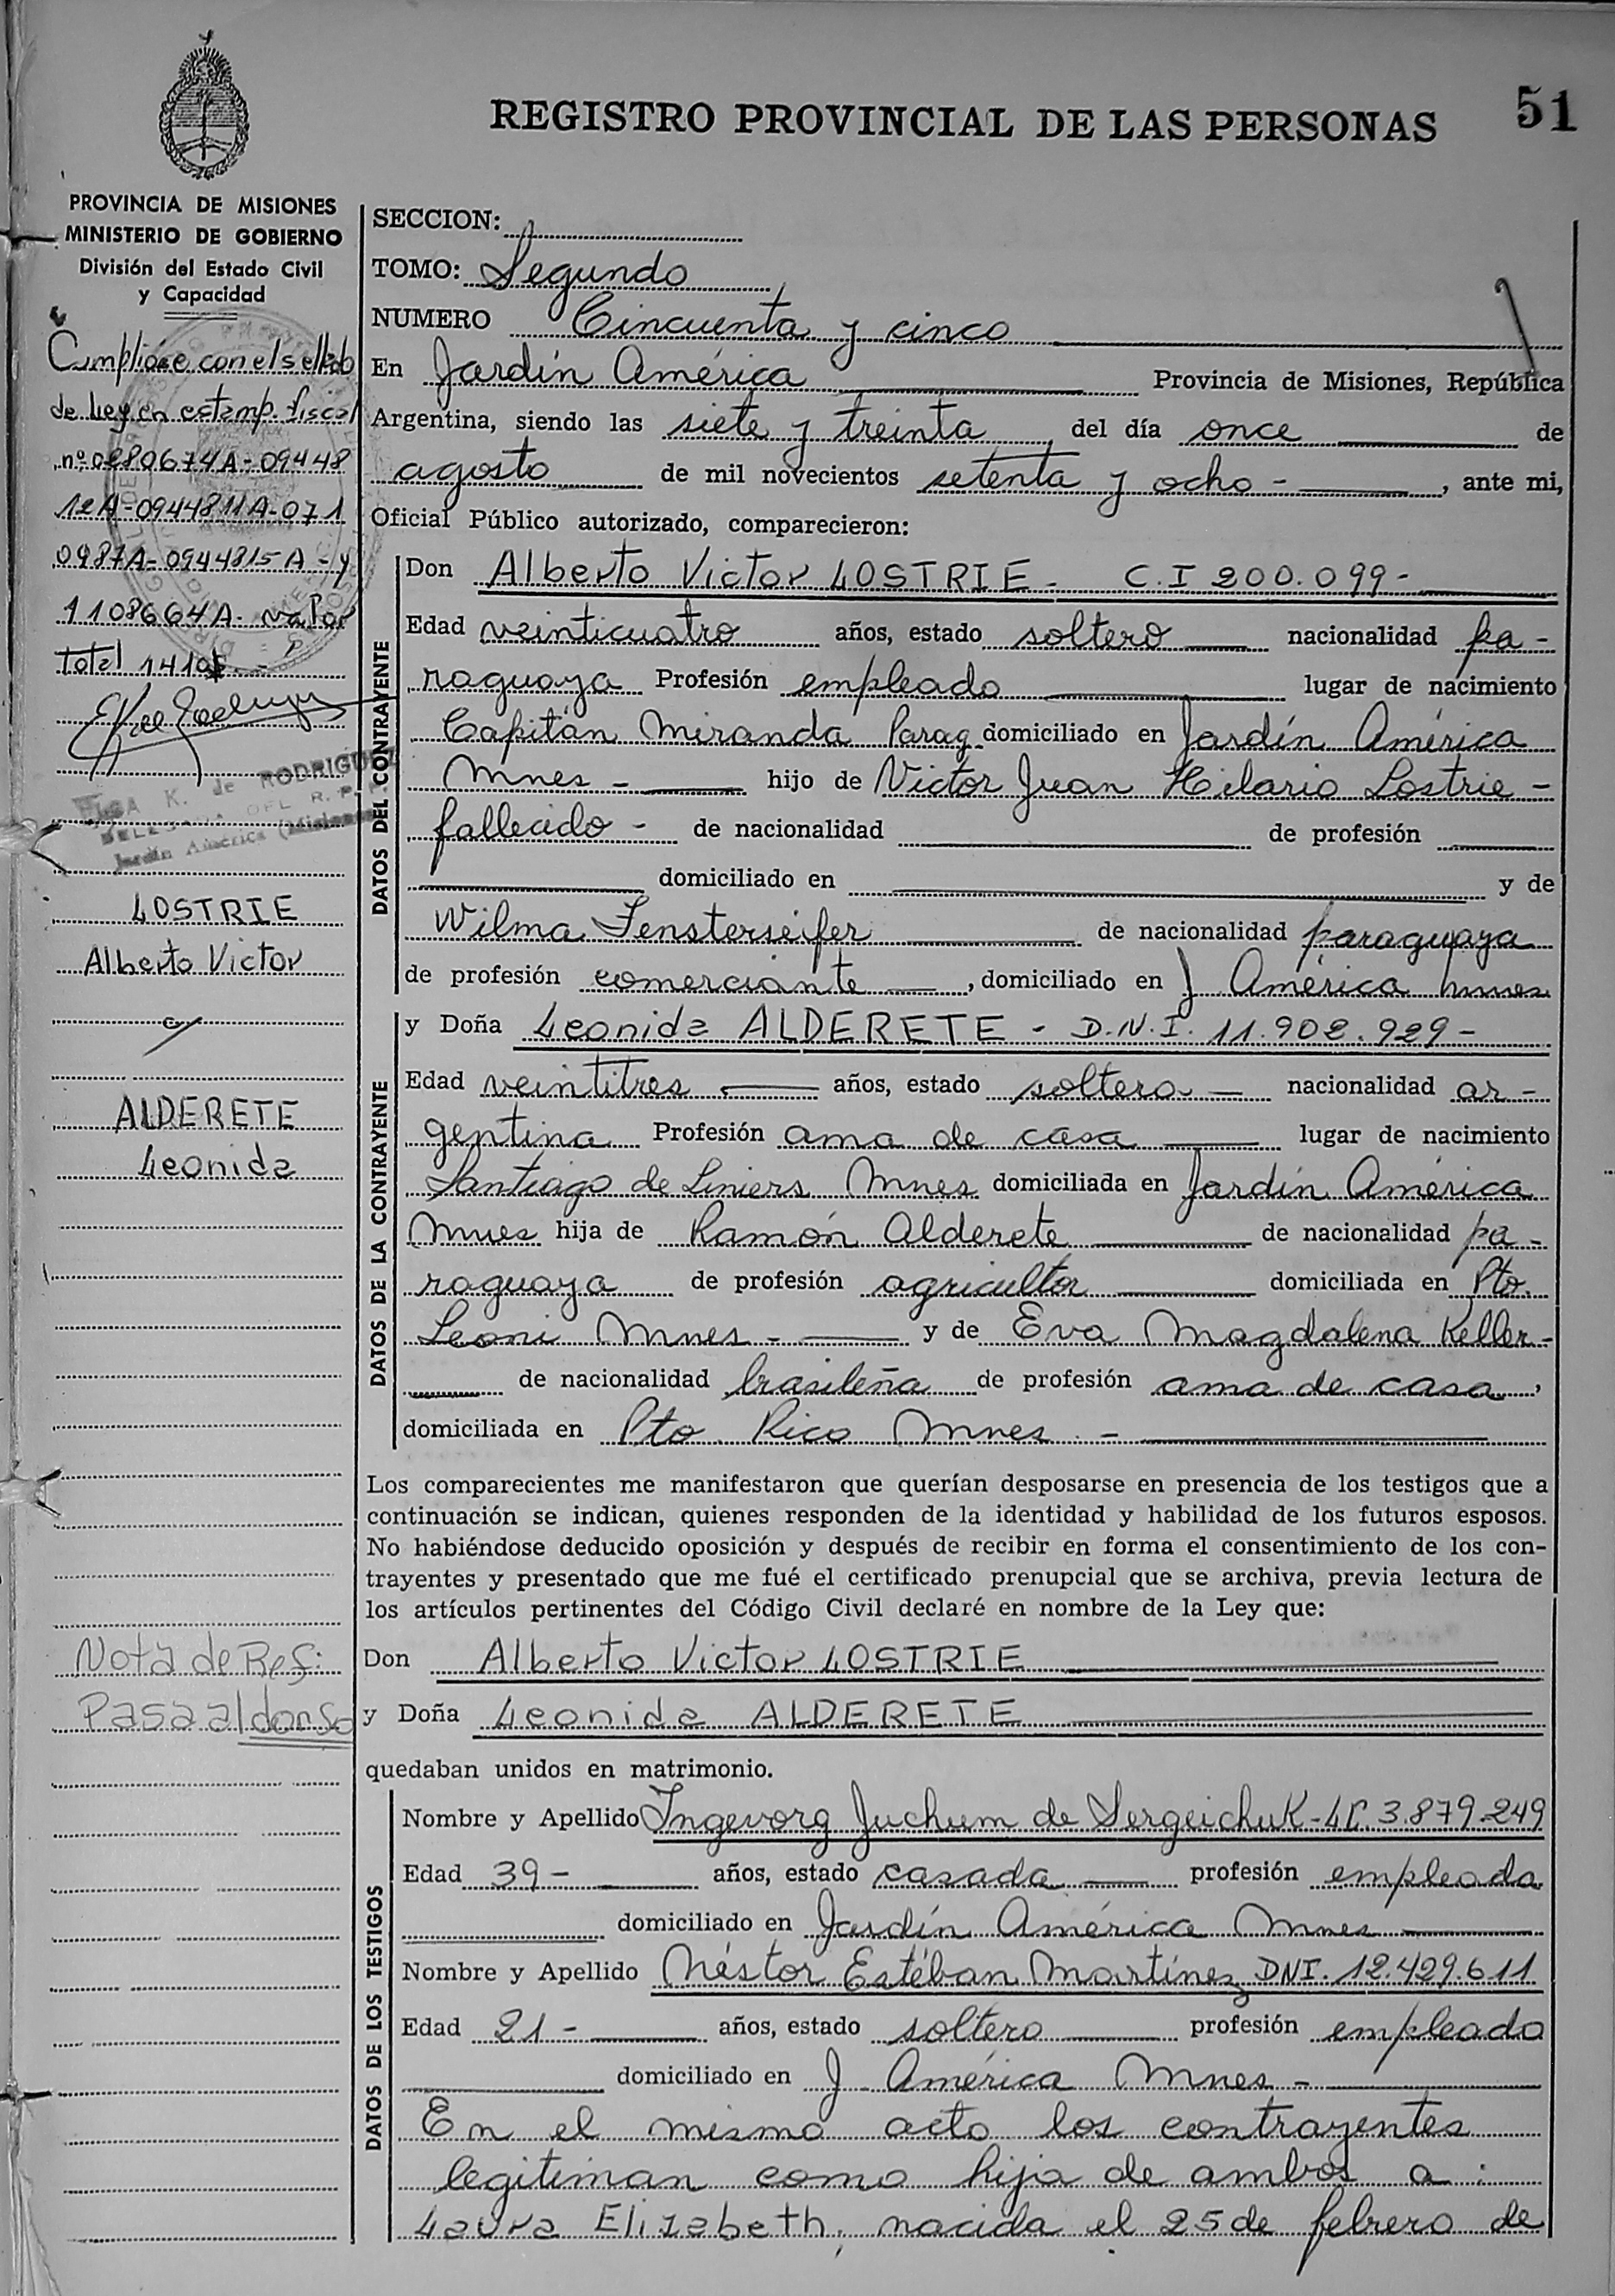 REGISTRO PROVINCIAL DE LAS PERSONAS
51
PROVINCIA DE MISIONES
MINISTERIO DE GOBIERNO
División del Estado Civil
y Capacidad
Cumplióse con el sellado
de Ley en estamp. fiscal
nº 0880674A-09448
12A-0944811A-071
0987A-0944815A-y
1108664A- valor
total 1410$.-
K. de RODRIGUEZ
DEL R. P.
Jardín América (Misiones)
LOSTRIE
Alberto Victor
y
ALDERETE
Leonida
Nota de Ref:
Pasa al dorso
SECCION:
TOMO: Segundo
NUMERO Cincuenta y cinco
En Jardín América Provincia de Misiones, República
Argentina, siendo las siete y treinta, del día once de
agosto de mil novecientos setenta y ocho -, ante mi,
Oficial Público autorizado, comparecieron:
DATOS DEL CONTRAYENTE
Don Alberto Victor LOSTRIE - C.I 200.099-
Edad veinticuatro años, estado soltero nacionalidad pa-
raguaya Profesión empleado lugar de nacimiento
Capitán Miranda Parag. domiciliado en Jardín América
Mnes - hijo de Victor Juan Hilario Lostrie -
fallecido - de nacionalidad de profesión
domiciliado en y de
Wilma Fensterseifer de nacionalidad paraguaya
de profesión comerciante, domiciliado en J América Mnes
DATOS DE LA CONTRAYENTE
y Doña Leonida ALDERETE - D.N.I. 11.902.929-
Edad veintitres años, estado soltera nacionalidad ar-
gentina Profesión ama de casa lugar de nacimiento
Santiago de Liniers Mnes domiciliada en Jardín América
Mnes hija de Ramón Alderete de nacionalidad pa-
raguaya de profesión agricultor domiciliada en Pto.
Leoni Mnes - y de Eva Magdalena Keller-
de nacionalidad brasileña de profesión ama de casa,
domiciliada en Pto Rico Mnes. -
Los comparecientes me manifestaron que querían desposarse en presencia de los testigos que a
continuación se indican, quienes responden de la identidad y habilidad de los futuros esposos.
No habiéndose deducido oposición y después de recibir en forma el consentimiento de los con-
trayentes y presentado que me fué el certificado prenupcial que se archiva, previa lectura de
los artículos pertinentes del Código Civil declaré en nombre de la Ley que:
Don Alberto Victor LOSTRIE
y Doña Leonida ALDERETE
quedaban unidos en matrimonio.
DATOS DE LOS TESTIGOS
Nombre y Apellido Ingevorg Juchum de Sergeichuk-LC.3.879.249
Edad 39- años, estado casada profesión empleada
domiciliado en Jardín América Mnes
Nombre y Apellido Néstor Estéban Martínez DNI. 12.429.611
Edad 21- años, estado soltero profesión empleado
domiciliado en J América Mnes -
En el mismo acto los contrayentes
legitiman como hija de ambos a:
Laura Elizabeth, nacida el 25 de febrero de